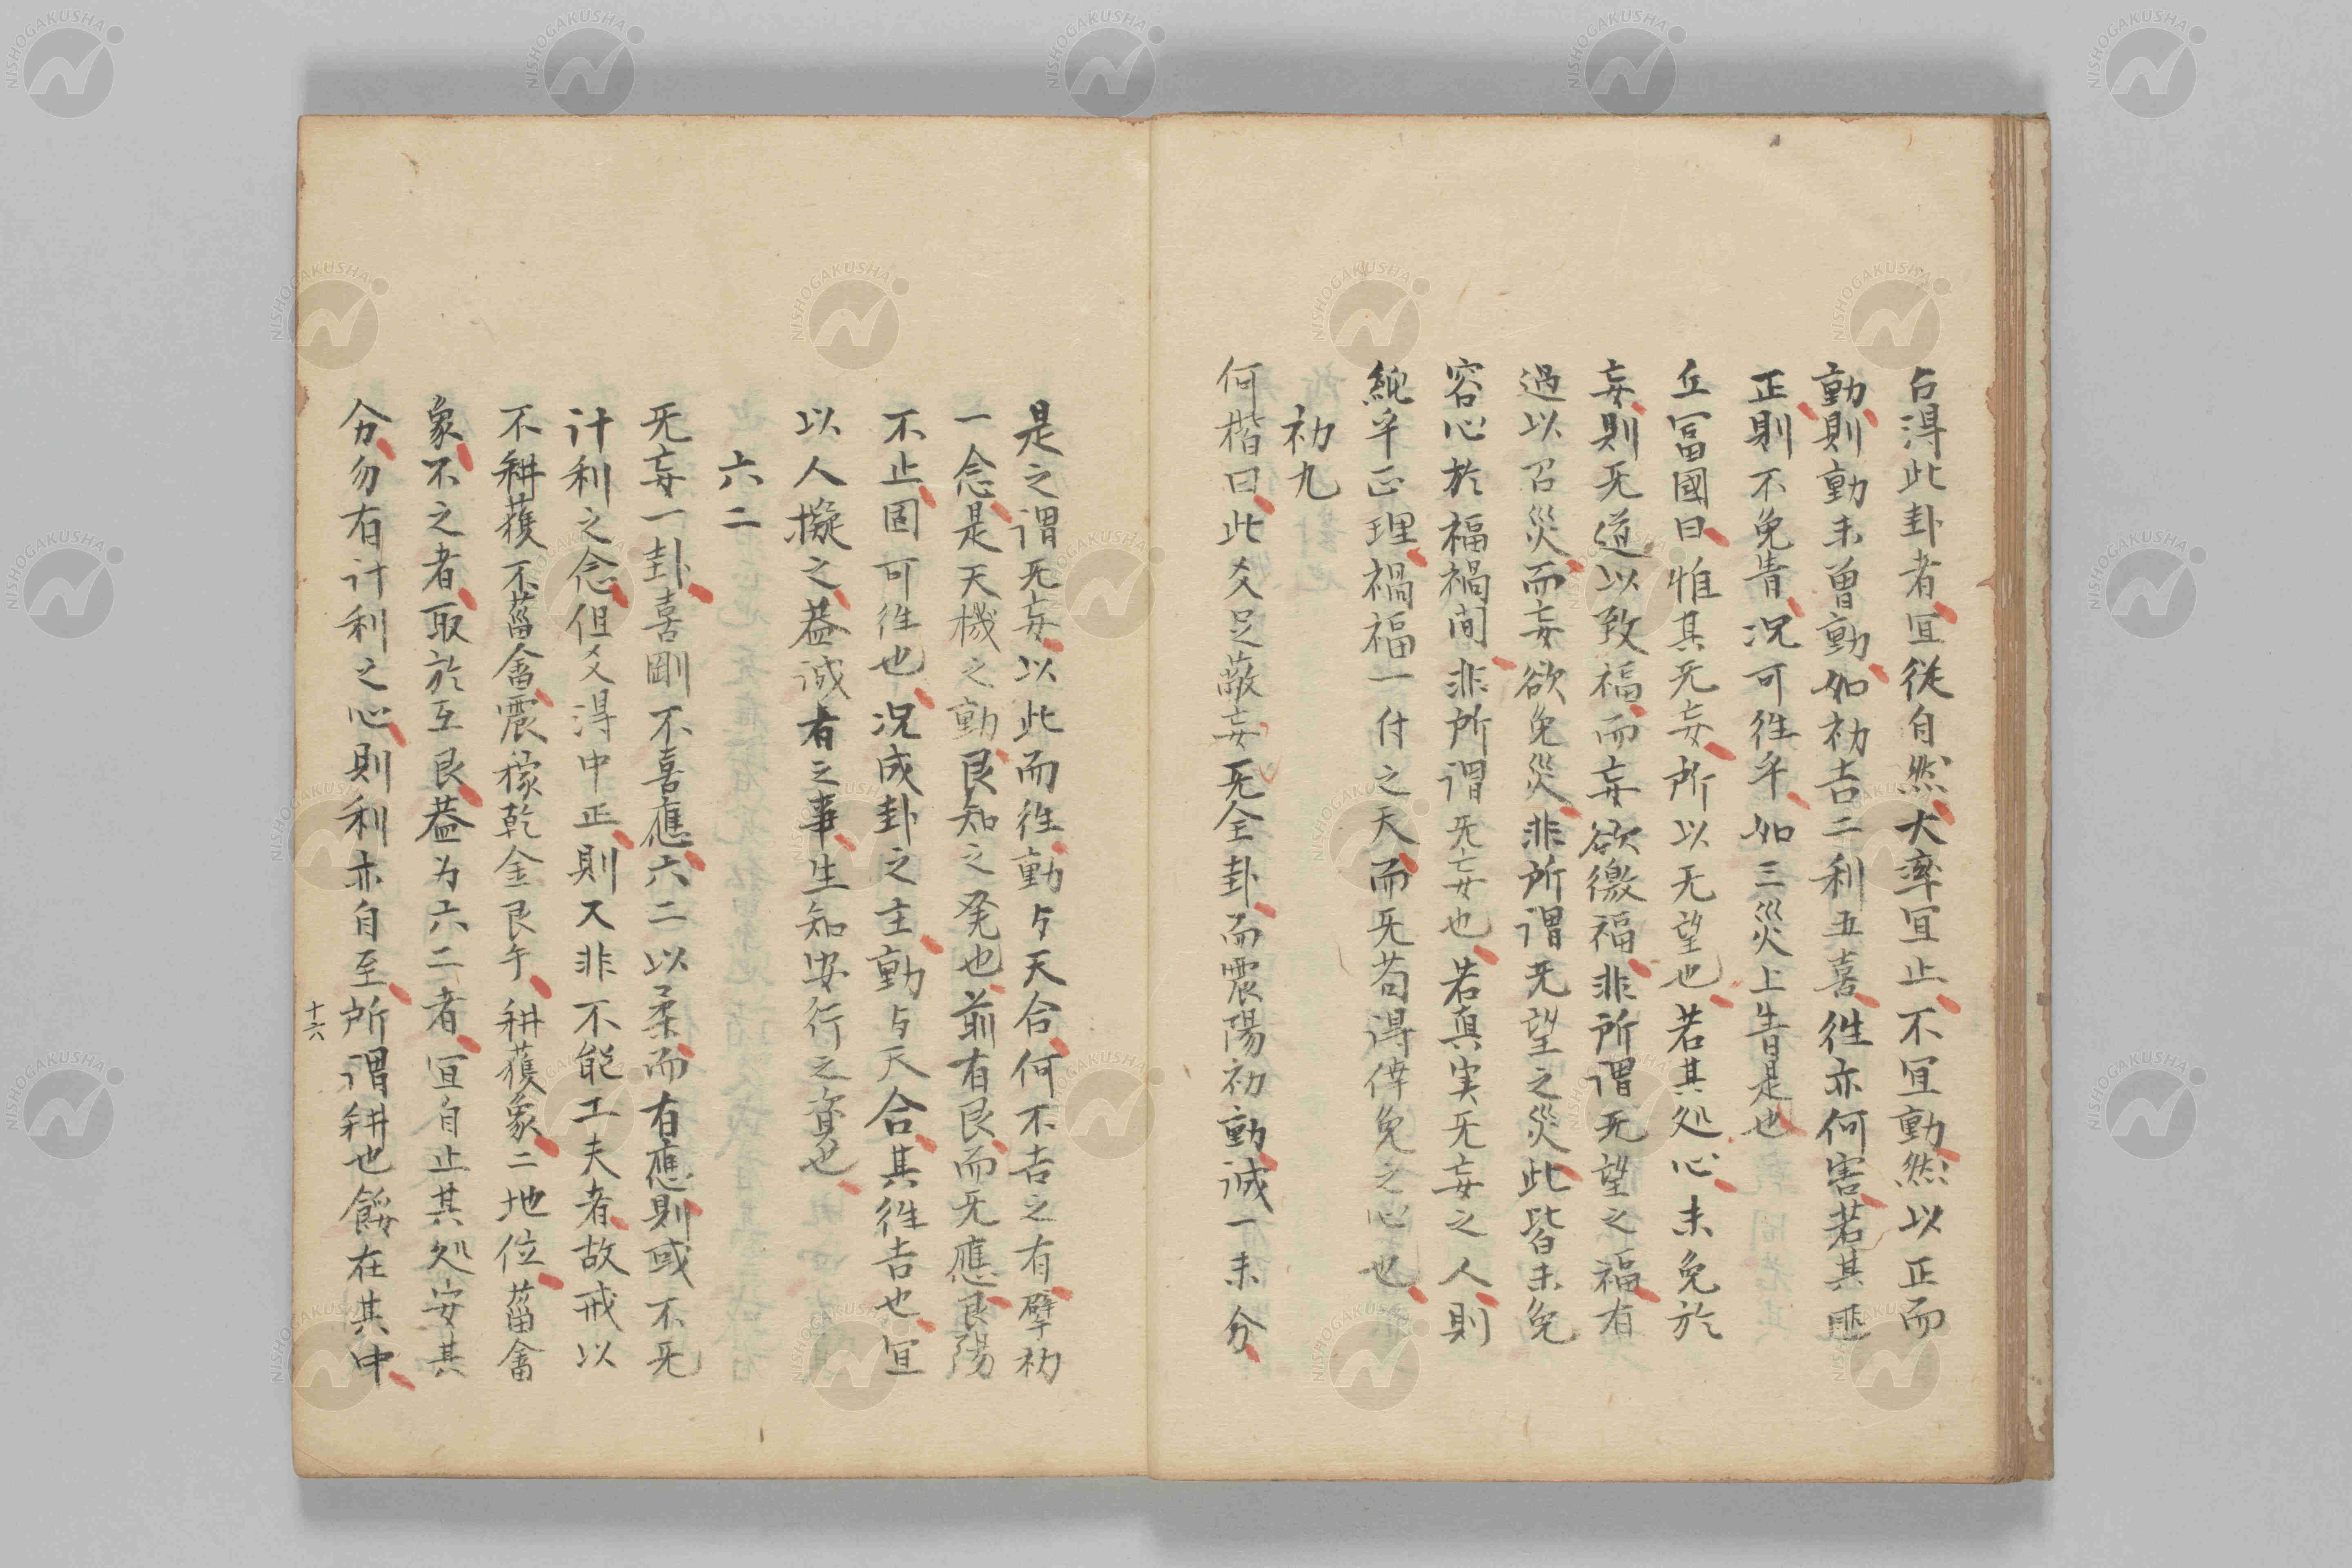 占淂此卦者宜従自然大率宜止不宜動然以正而
動則動未曽動如初吉二利五喜徃亦何害若其匪
正則不免眚况可徃乎如三災上眚是也
丘冨國曰惟其无妄所以无望也若其処心未免於
妄則无道以致福而妄欲徼福非所謂无望之福有
過以召災而妄欲免災非所謂无望之災此皆未免
容心於福禍間非所謂无妄也若真実无妄之人則
純乎正理禍福一付之天而无苟淂倖免之心也
初九
何楷曰此爻足蔽妄无全卦而震陽初動誠一未分
是之謂无妄以此而徃動与天合何不吉之有擘初
一念是天機之動艮知之発也前有艮而无應艮陽
不止固可徃也况成卦之主動与天合其徃吉也宜
以人擬之葢誠者之事生知安行之資也
六二
无妄一卦喜剛不喜應六二以柔而有應則或不无
计利之念但爻淂中正則又非不能工夫者故戒以
不耕穫不菑畬震稼乾金艮手耕穫象二地位菑畬
象不之者取於互艮葢为六二者宜自止其処安其
分勿有计利之心則利亦自至所謂耕也餒在其中
十六
NISHOGAKUSHA